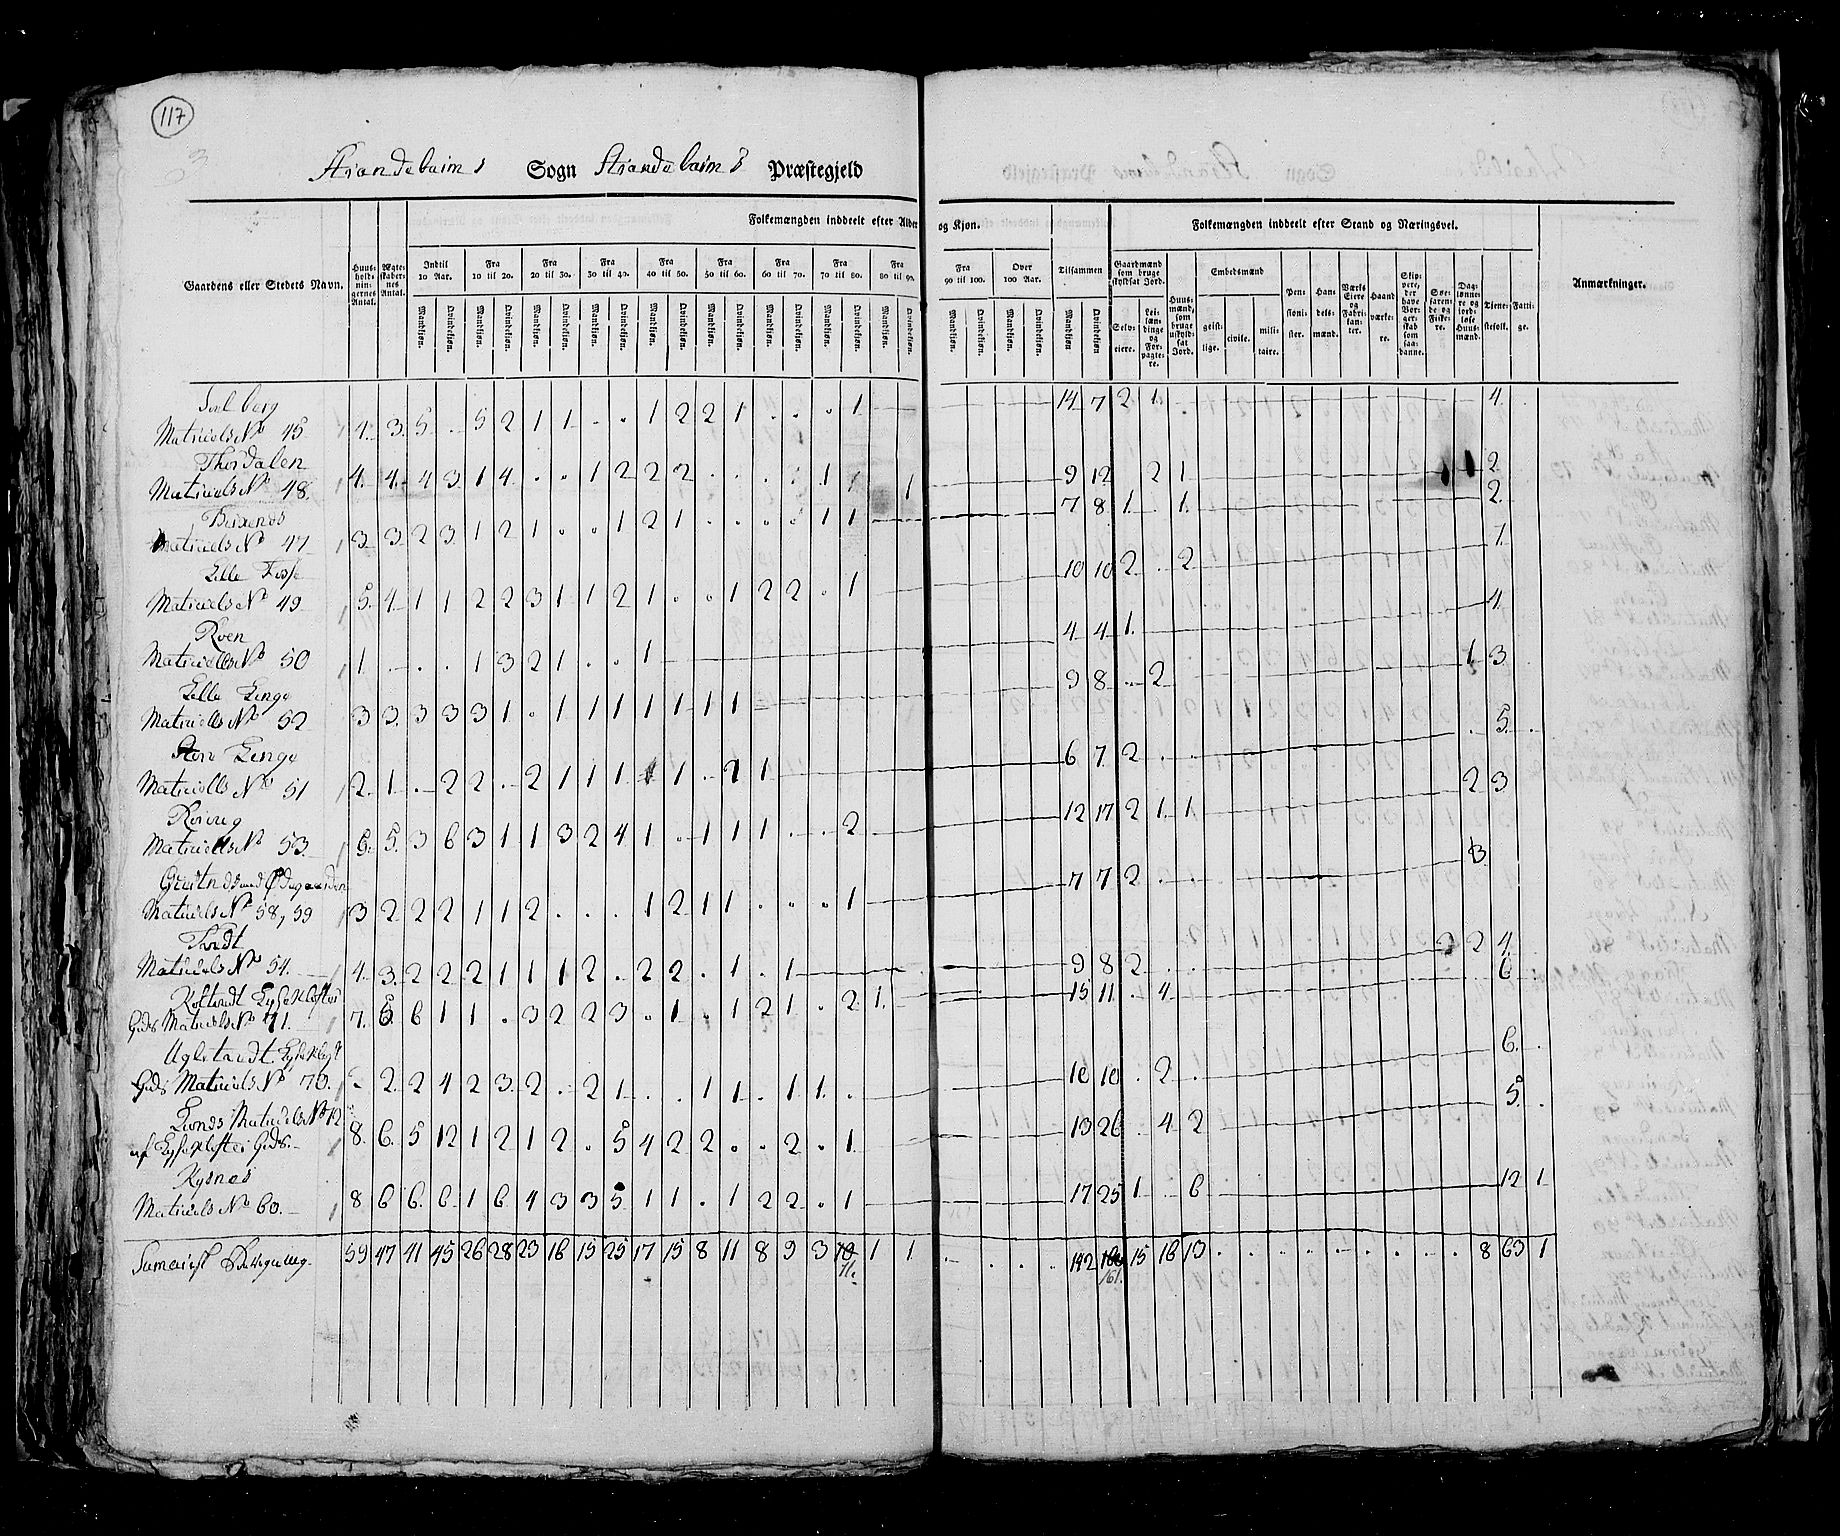 117
Strandebarms Sogn Strandebarms Præstegjeld
Folkemængden inddeelt efter Alder og Kjøn.
Folkemængden inddeelt efter Stand og Næringsvei.
Gaardens eller Stedets Navn.
Huus-holdnin-gernes Antal.
Ægte-skaber-nes Antal.
Indtil 10 Aar.
Fra 10 til 20.
Fra 20 til 30.
Fra 30 til 40.
Fra 40 til 50.
Fra 50 til 60.
Fra 60 til 70.
Fra 70 til 80.
Fra 80 til 90.
Fra 90 til 100.
Over 100 Aar.
Tilsammen
Mandkjøn. Qvindekjøn.
Gaardmænd som bruge skyldsat Jord.
Selv-eiere.
Lei-læn-dinge og For-pagte-re.
Huus-mænd, som bruge uskyld-sat Jord.
Embedsmænd
geist-lige.
civile.
mili-taire.
Pen-sioni-ster.
Han-dels-mænd.
Værks Eiere og Fabri-kan-ter.
Haand værke-re.
Skip-pere, der have Bor-ger-skab som saa-danne.
Søe-faren-de og Fiske-re.
Dag-lønne-re og jord-løse Huus-mænd.
Tjene-stefolk.
Fatti-ge.
Anmærkninger.
Matriculs No 45 4. 3. 5 . 5 2 1 1 . . 1 2 2 1 . . . 1 14 7 2 1. 4.
Thordalen
Matriculs No 48. 4. 4. 4 3 1 4 . . 1 2 2 2 . . . . 1 1 1 9 12 2 1 1 1 2
Matriculs No 47 3 3 2 3 1 2 1 . . 1 2 1 . . . . 1 1 7 8 1. . 1. 2.
Lille Fosse
Matriculs No 49 5. 4. 1 1 2 2 3 1 1 2 1 . . 1 2 2 . 1 10 10 2 . 2 1.
Roen
Matriculs No 50 1 . . . 1 3 2 1 . . 1 4 4 1. 4.
Lille Linge
Matriculs No 52 3 3 3 3 3 1 . 1 1 1 1 1 1 1 9 8 . 2 1. 3
Stor Linge
Matriculs No 51 2. 1 . 2 2 . 2 1 1 1 1 . 1 6 7 2 . . 5.
Matriculs No 53. 5. 3 6 3 1 1 3 2 4 1 . 1 1 1 . . 2 12 17 2 1. 1 2 3
Matriculs No 58, 59 3 2 2 2 1 1 2 . . . 1 2 1 1 . . . 1 7 7 2 . . 3
Matriculs No 54. 4. 3. 2 2 2 1 1 1 2 . 2 2 . 1 . 1 9 8 2 . 2 2 4.
Gods Matriculs No 71. 7. 6 1 1 . 3 2 2 3 . 1 . 1 2 1 . 2 1. 15 11. . 4. 6
Gods Matriculs No 70. 2. 2 4 2 3 2 . 2 1 . . 1 1 . 1 1. 10 10 . 2 . 6.
Matriculs No 72
8. 6. 5 12 1 2 1 2 . 5 4 2 2 . . 2 . 1. 13 26 . 4 2 5.
Kysnæs
Matriculs No 60. 8 6 6. 6 1 6 4 3 3 5 1 1 . 1 2 2 . 1 17 25 1 . 6 12 1
59 47 41 45 26 28 23 16 15 25 17 15 8 11 8 9 3 10 1 1 142 160 15 16 13 8 63 1
11. 161.